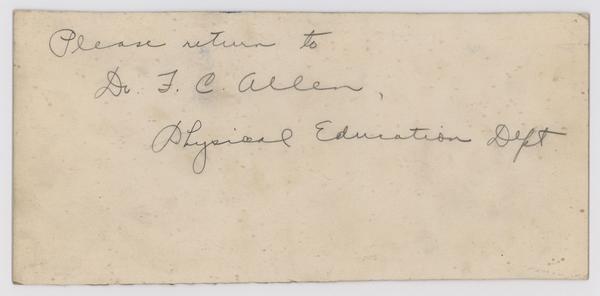 Please return to
Dr. F. C. Allen,
Physical Education Dept